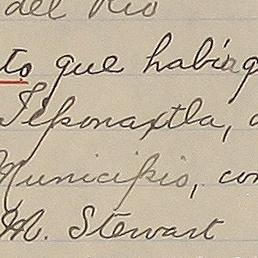 del Rio
to que había q
Teponaxtla, a
Municipio, con
M. Stewart